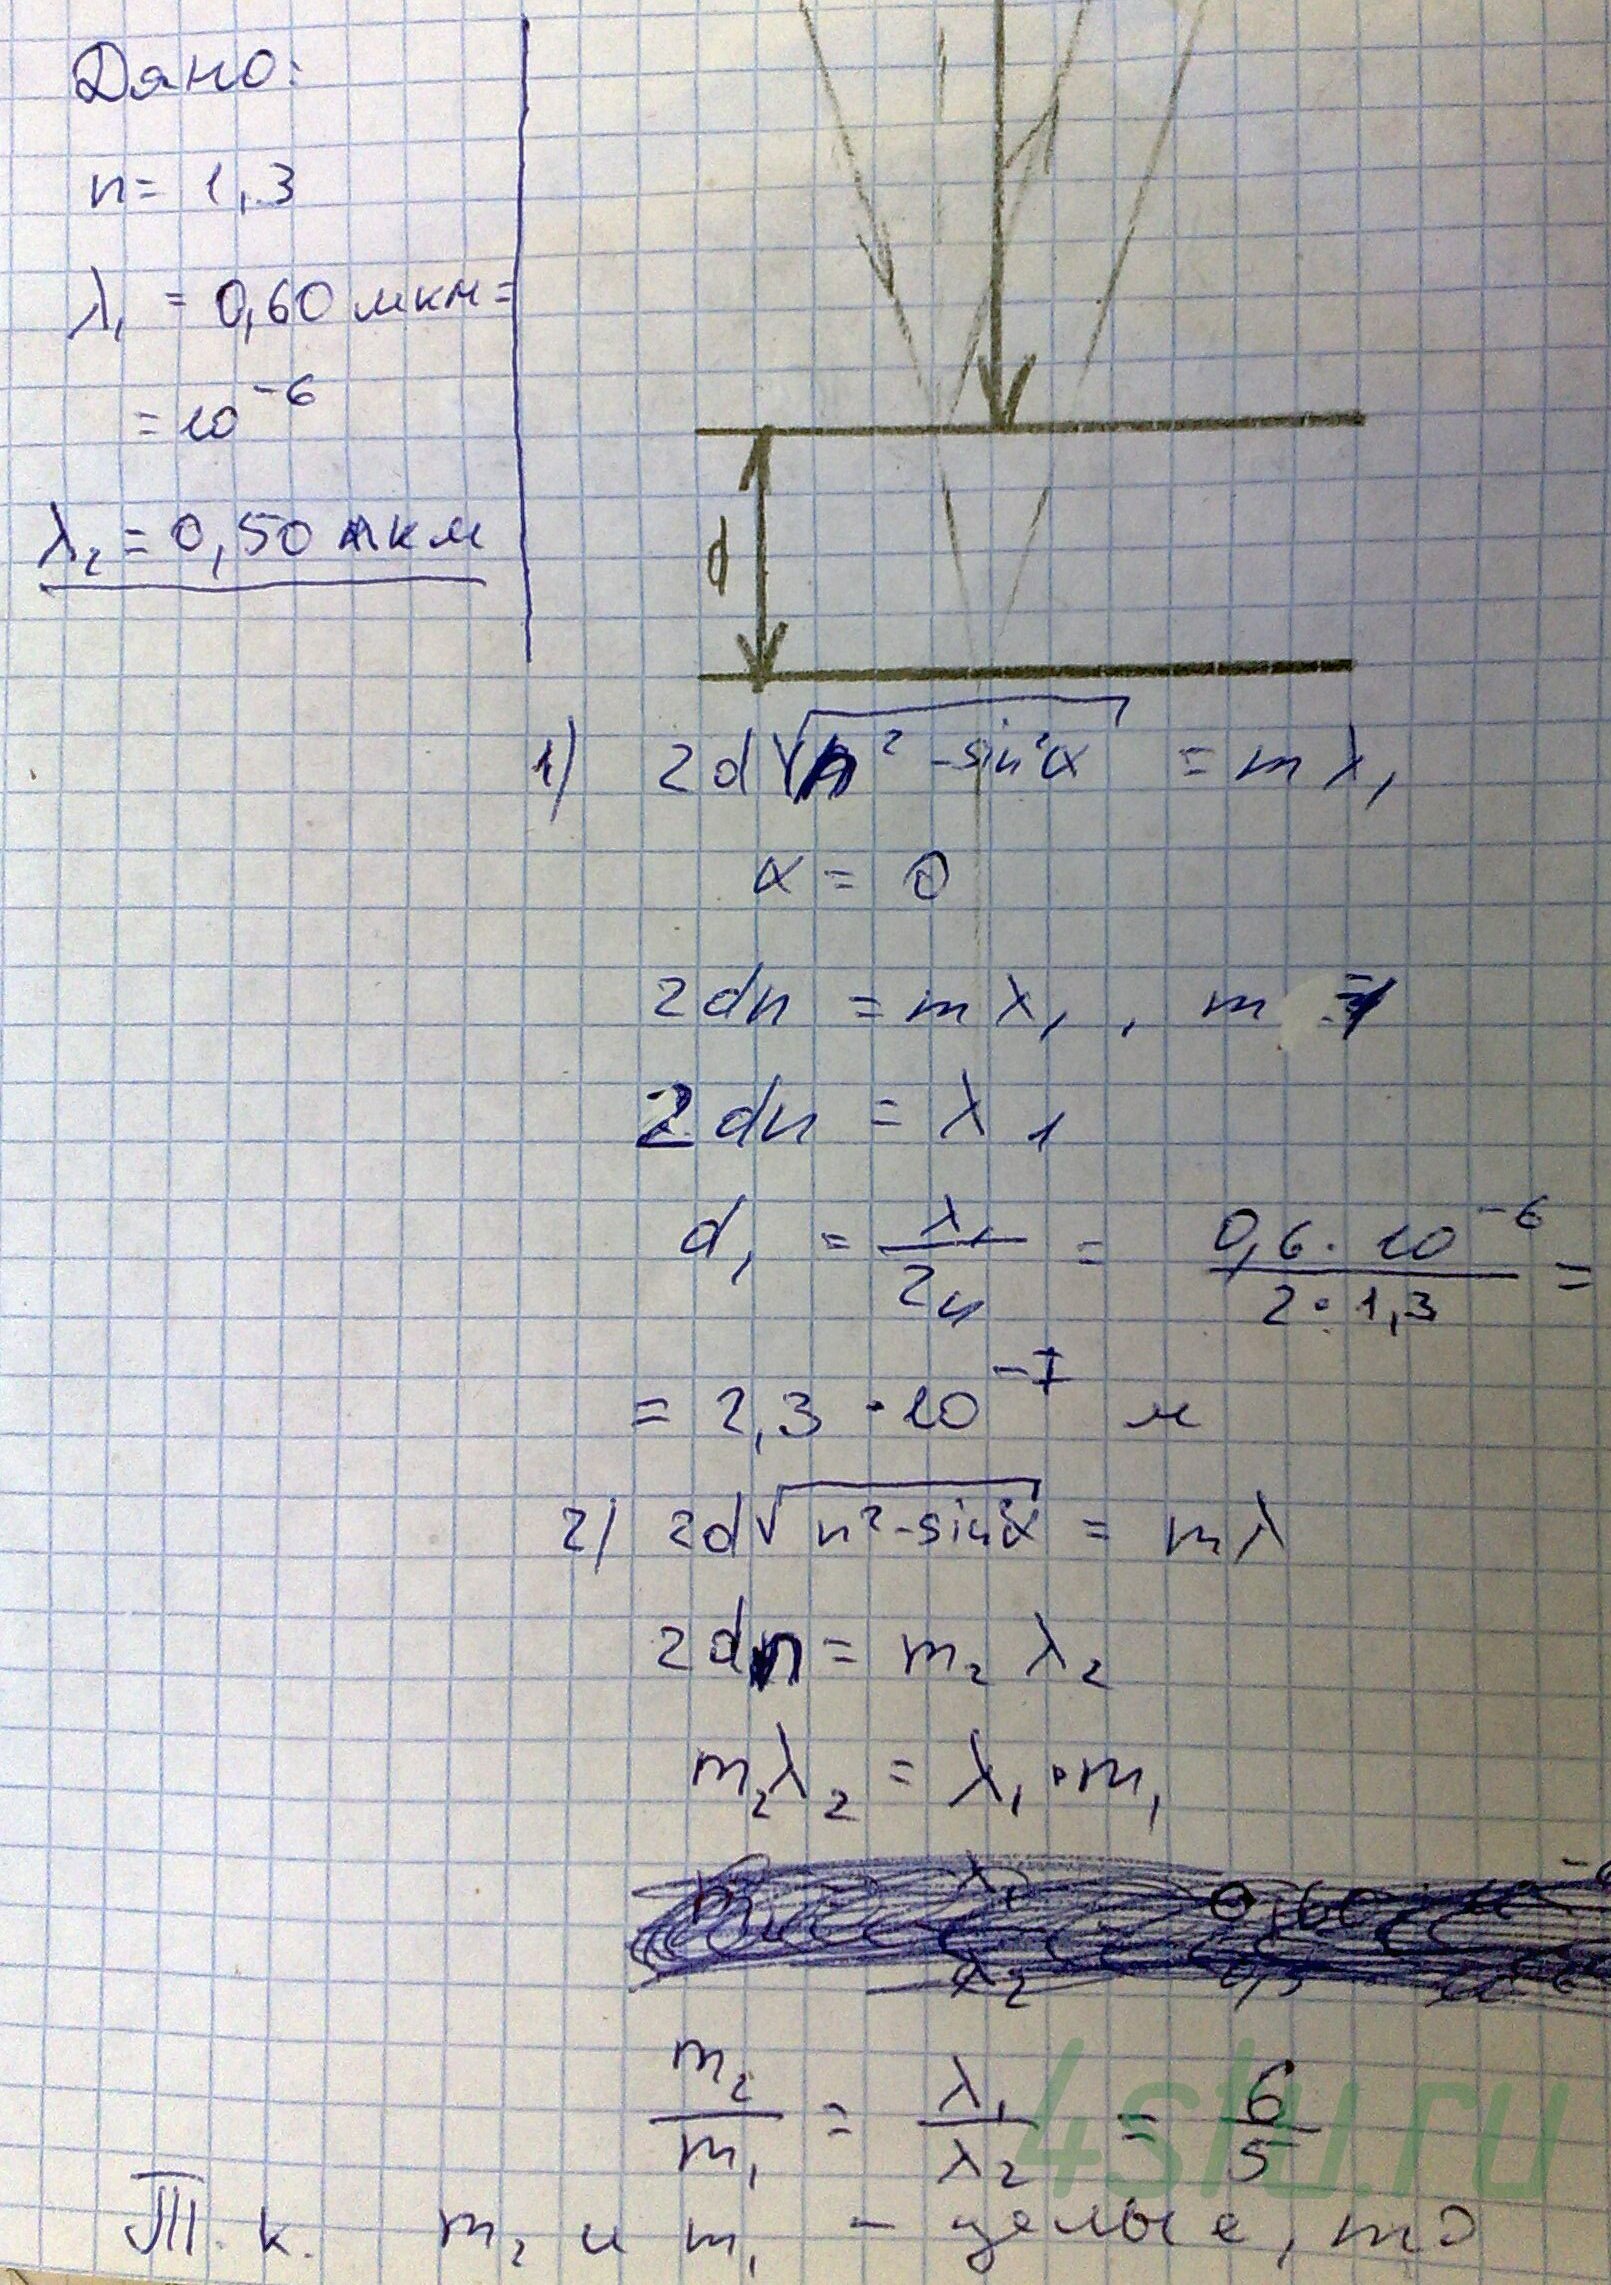 Дано:
n = 1,3
λ₁ = 0,60 мкм =
= 10⁻⁶
λ₂ = 0,50 мкм
d
1) 2d√(n² - sin²α) = mλ₁
α = 0
2dn = mλ₁, m = 1
2dn = λ₁
d₁ = λ₁/2n = 0,6 · 10⁻⁶/2 · 1,3 =
= 2,3 · 10⁻⁷ м
2) 2d√(n² - sin²α) = mλ
2dn = m₂ λ₂
m₂λ₂ = λ₁ · m₁
m₂/m₁ = λ₁/λ₂ = 6/5
4stu.ru
Т.к. m₂ и m₁ - целые, то